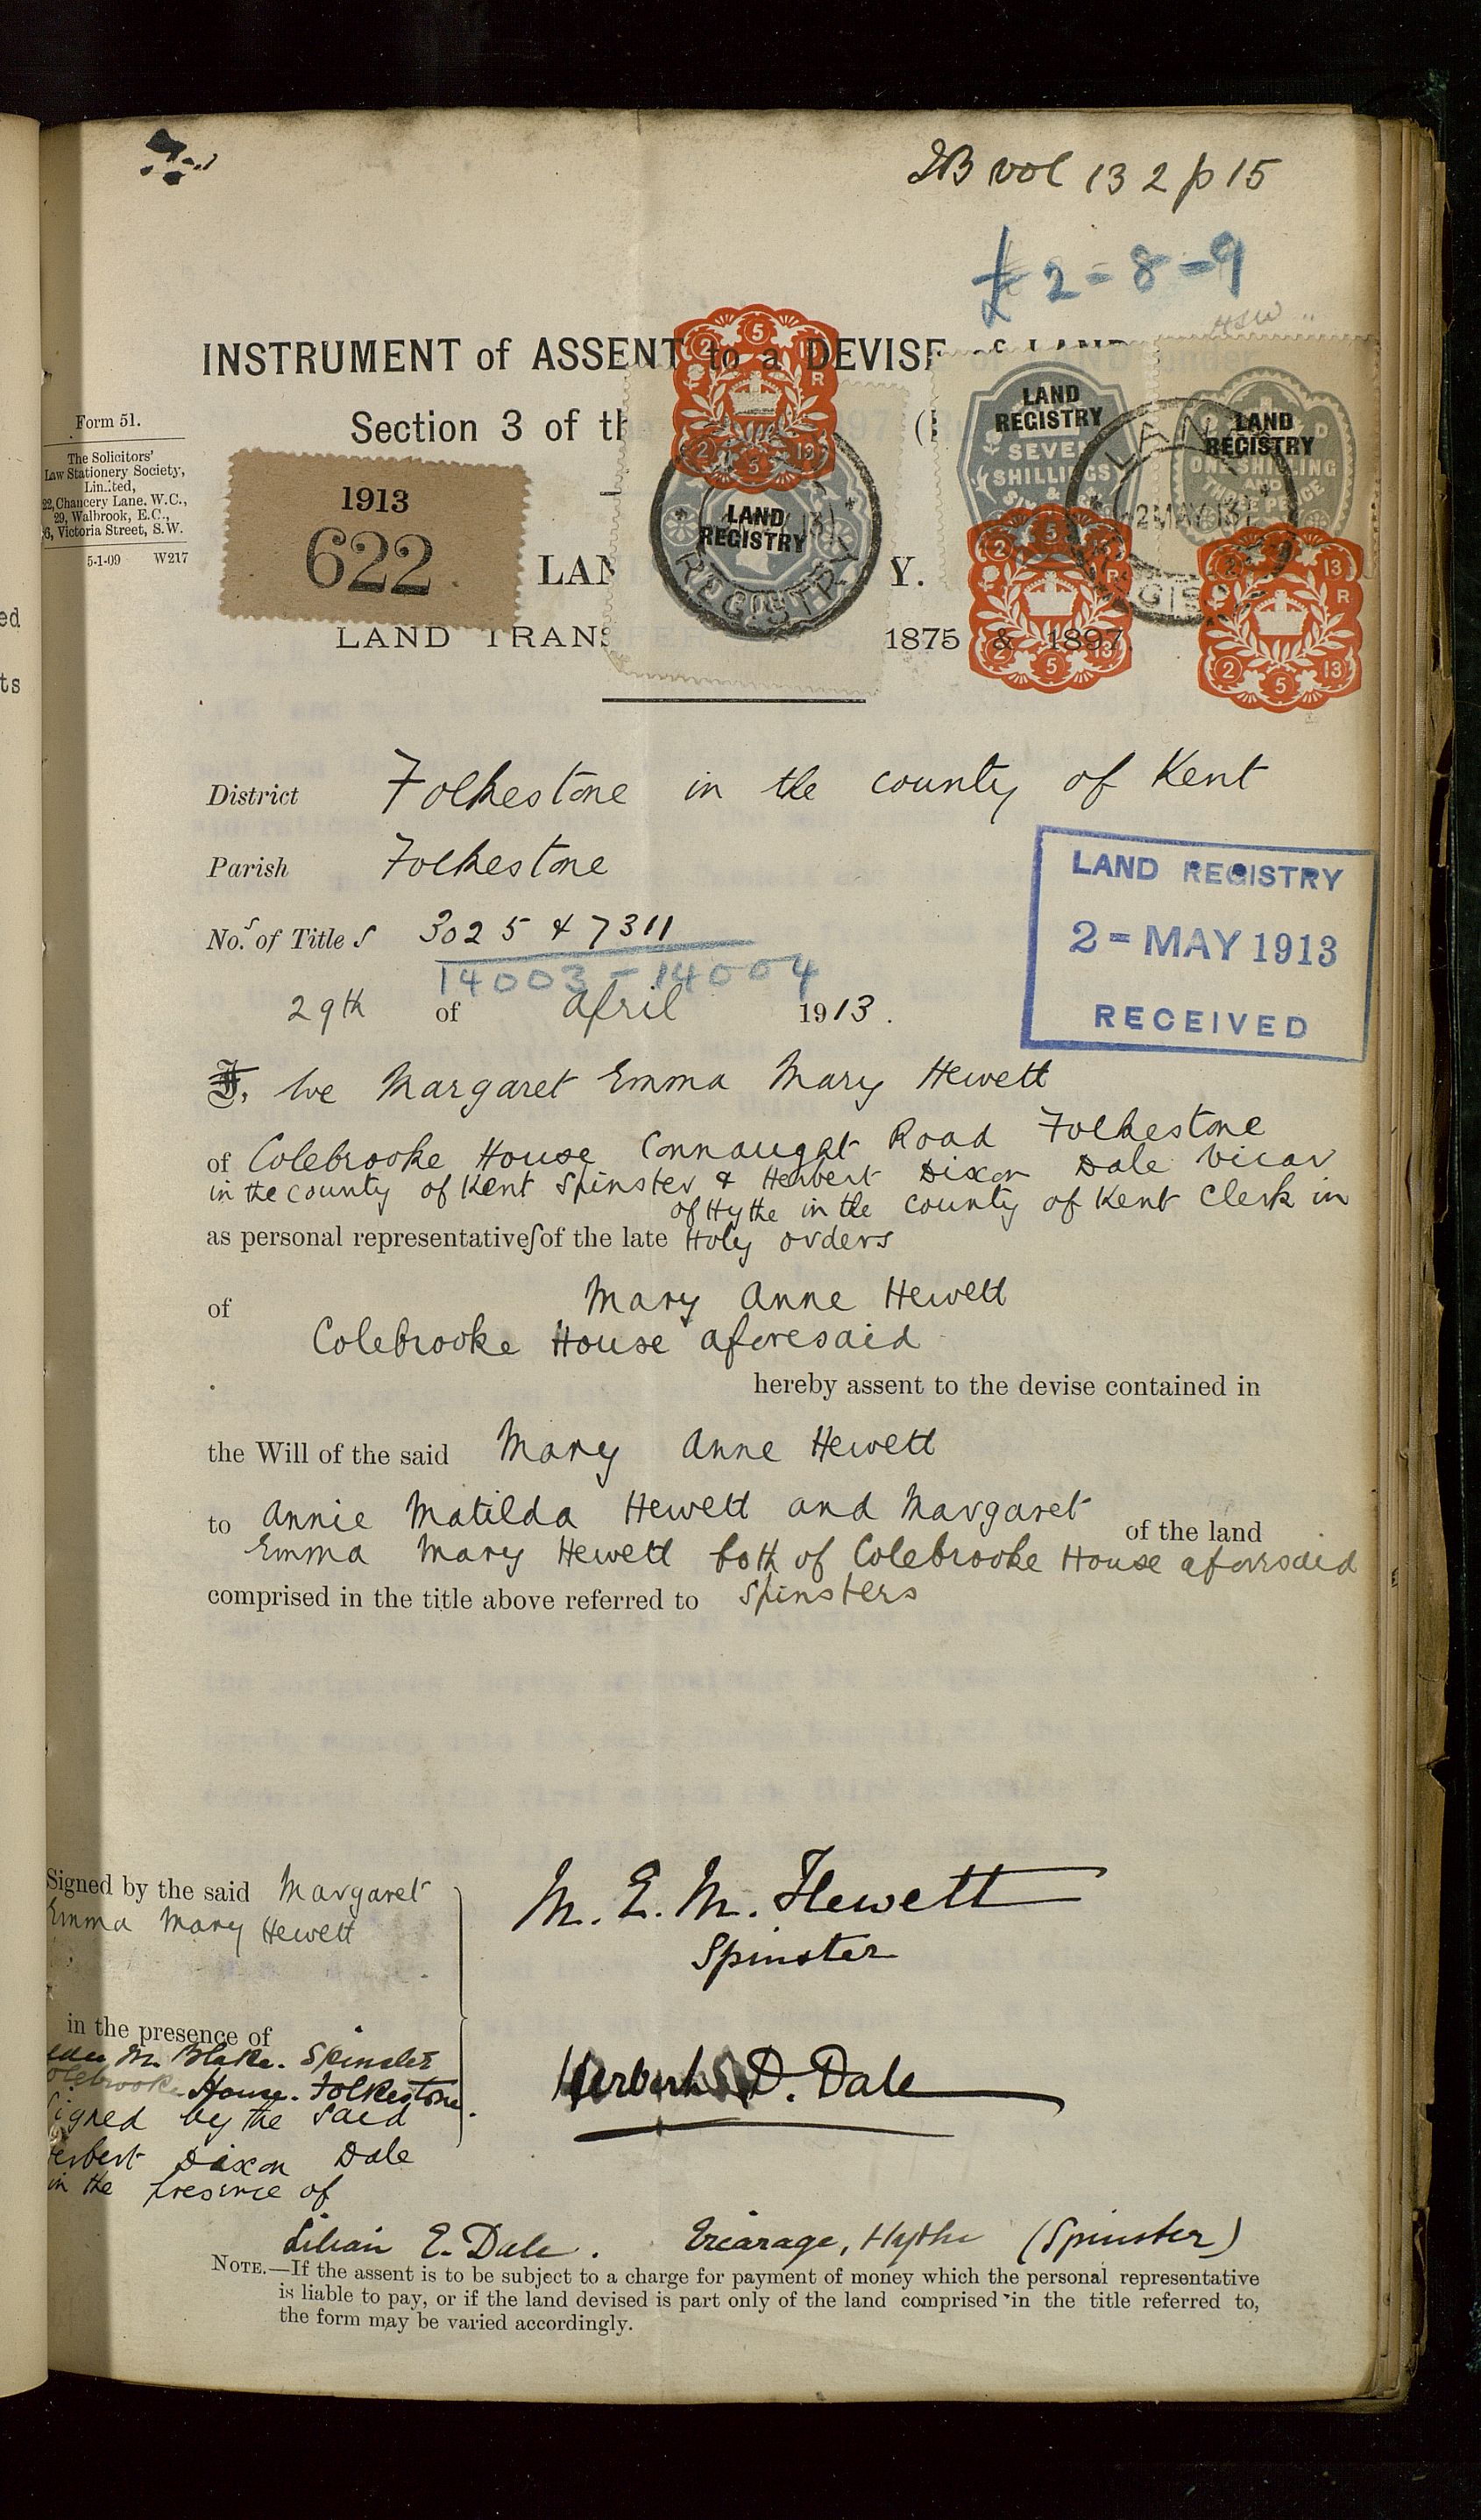 IB vol 132 p 15
£2=8=9
INSTRUMENT of ASSENT to a DEVISE of LAND under
Section 3 of th
Form 51.
The Solicitors'
Law Stationery Society,
Limited,
22, Chancery Lane, W.C.,
29, Walbrook, E.C.,
6, Victoria Street, S.W.
5-1-09 W217
1913
622
LAND REGISTRY
LAND REGISTRY
SEVEN SHILLINGS &
LAND REGISTRY
ONE SHILLING AND THREE PENCE
2 MAY 13
REGISTRY
LAN Y.
LAND TRANS 1875 & 1897.
ed
ts
District Folkestone in the county of Kent
Parish Folkestone
No.s of Title s 3025 & 7311
14003 - 14004
LAND REGISTRY
2 - MAY 1913
RECEIVED
29th of April 1913.
I, We Margaret Emma Mary Hewett
of Colebrooke House Connaught Road Folkestone
in the county of Kent Spinster & Herbert Dixon Dale Vicar
of Hythe in the county of Kent Clerk in
as personal representatives of the late Holy orders
Mary Anne Hewett
of Colebrooke House aforesaid
hereby assent to the devise contained in
the Will of the said Mary Anne Hewett
to Annie Matilda Hewett and Margaret of the land
Emma Mary Hewett both of Colebrooke House aforesaid
comprised in the title above referred to Spinsters
Signed by the said Margaret
Emma Mary Hewett
M. E. M. Hewett
Spinster
in the presence of
M. Blake. Spinster
olebrooke House. Folkestone.
Signed by the said
erbert Dixon Dale
in the presence of
Herbert D. Dale
Lilian E. Dale. Vicarage, Hythe (Spinster)
NOTE.—If the assent is to be subject to a charge for payment of money which the personal representative
is liable to pay, or if the land devised is part only of the land comprised in the title referred to,
the form may be varied accordingly.